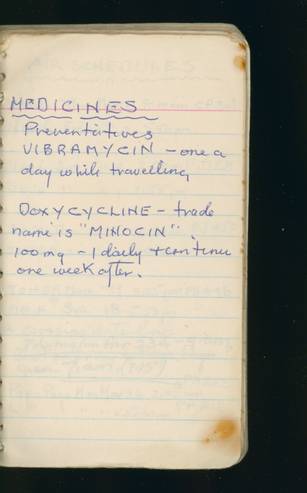 MEDICINES
Preventatives
VIBRAMYCIN – one a
day while travelling
DOXYCYCLINE – trade
name is "MINOCIN".
100 mg – 1 daily + continue
one week after.